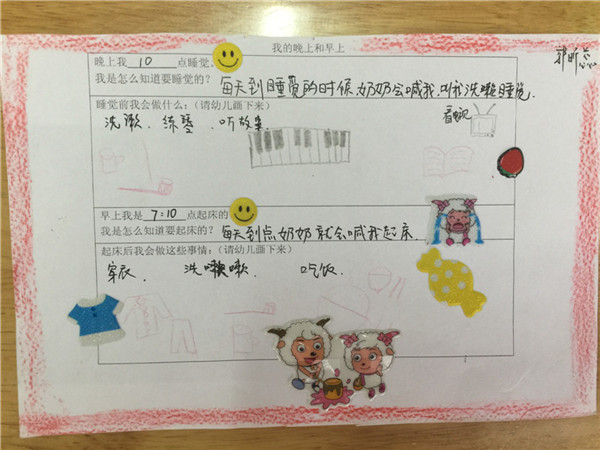 我的晚上和早上
晚上我 10 点睡觉。
我是怎么知道要睡觉的？ 每天到睡觉的时候奶奶会喊我,叫我洗漱睡觉.
睡觉前我会做什么：（请幼儿画下来）
洗漱、练琴、听故事
看电视
早上我是 7:10 点起床的
我是怎么知道要起床的？ 每天到点奶奶就会喊我起床.
起床后我会做这些事情：（请幼儿画下来）
穿衣、 洗漱漱、 吃饭、